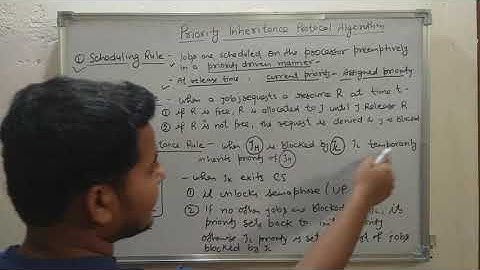 Priority Inheritance Protocol Algorithm
① Scheduling Rule - Jobs are scheduled on the processor preemptively
in a priority driven manner
- At release time, current priority = assigned priority
- when a job J requests a resource R at time t.
① if R is free, R is allocated to J until J Release R
② if R is not free, the request is denied & J is blocked
Rule - when JH is blocked by JL JL temporarily
inherits priority of JH
- when JL exits CS
① it unlocks semaphore
② if no other jobs are blocked its
priority sets back to
otherwise JL priority is set of jobs
blocked by JL